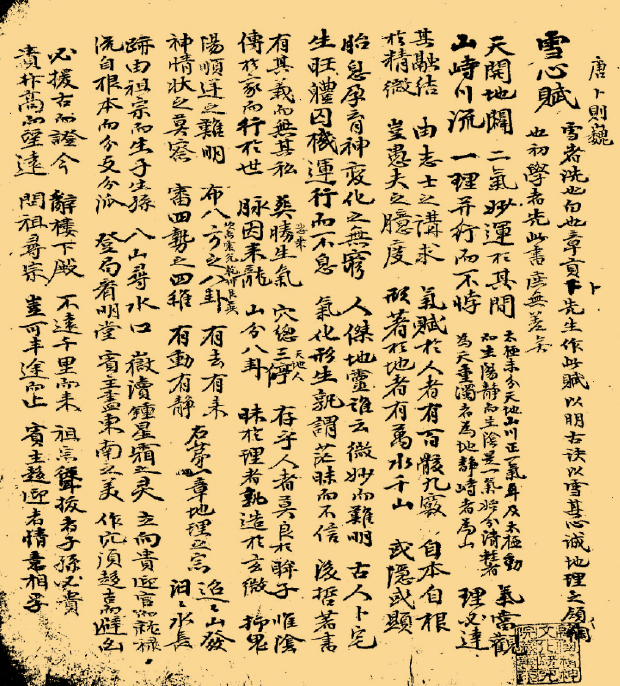 唐卜則巍
雪心賦 雪者洗也白也章貢卜先生作此賦以明古訣以雪其心誠地理之領綱
也初學者先此書庶無差矣
天開地闢 二氣妙運於其間 太極未分天地山川正一氣耳及太極動
而生陽靜而生陰是一氣始分清者 氣當觀
山峙川流 一理并行而不悖 為天重濁者為地靜峙者為山 理必達
其融結 由志士之講求 氣賦於人者有百骸九竅 自本自根
於精微 豈愚夫之臆度 形著於地者有萬水千山 或隱或顯
胎息孕育神變化之無窮 人傑地靈誰云微妙而難明 古人卜宅
生旺軆囚機運行而不息 氣化形生孰謂茫昧而不信 後哲著書
有其義而無其私 葬勝生氣 穴總三停 天地人 存乎人者莫良於眸子 惟陰
傳於家而行於世 脉因来龍 山分八卦 昧於理者孰造於玄微 抑鬼
陽順逆之難明 布八方之八卦 有去有来 迢迢山發
神情狀之莫察 審四勢之四維 有動有靜 一章地理之宗 汩汩水長
跡由祖宗而生子生孫 八山尋水口 嶽瀆鍾星宿之灵 立而貴迎官而就祿
流自根本而分支分派 登局看明堂 賓主盡東南之美 作穴須趨吉而避凶
必援古而證今 辭樓下殿 不遠千里而来 祖宗聳拔者子孫必貴
貴升高而望遠 問祖尋宗 豈可半途而止 賓主趨迎者情意相孚